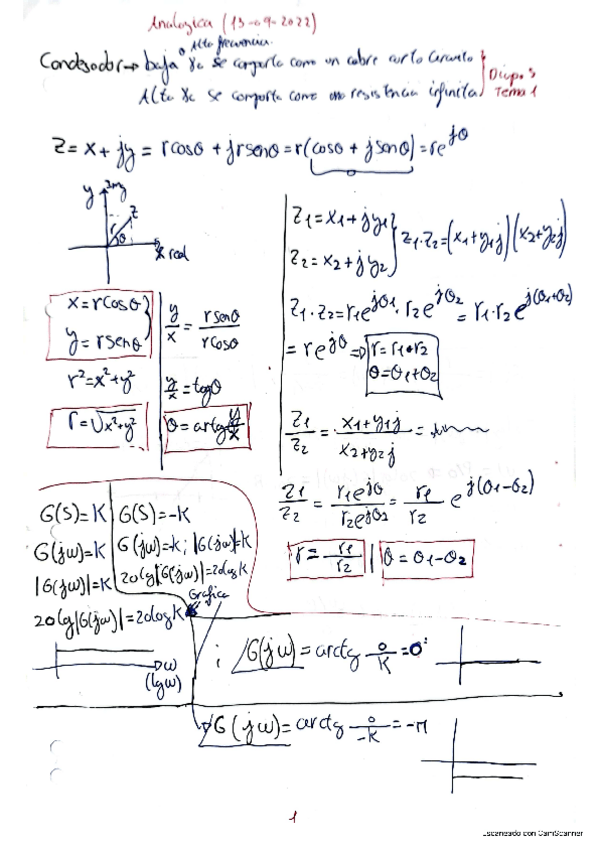 Analogica (13-09-2022)
o Alta frecuencia
Condesador → baja Xc se comporta como un cable corto circuito
Alta Xc se comporta como una resistencia infinita
Diapo 5
Tema 1
Z = x + jy = r cosθ + jr senθ = r(cosθ + j senθ) = re^jθ
y Img
r θ Z
x real
x = r cosθ
y = r senθ
r² = x² + y²
r = √x²+y²
y/x = r senθ / r cosθ
y/x = tgθ
θ = arctg y/x
Z1 = x1 + jy1
Z2 = x2 + jy2
Z1·Z2 = (x1+y1j)(x2+y2j)
Z1·Z2 = r1e^jθ1 · r2e^jθ2 = r1·r2 e^j(θ1+θ2)
= re^jθ ⇒ r = r1·r2
θ = θ1+θ2
Z1/Z2 = x1+y1j / x2+y2j =
Z1/Z2 = r1e^jθ / r2e^jθ2 = r1/r2 e^j(θ1-θ2)
r = r1/r2 | θ = θ1-θ2
G(S) = K
G(jω) = K
|G(jω)| = K
20lg|G(jω)| = 20logK
ω
(lgω)
G(S) = -K
G(jω) = -K; |G(jω)| = K
20lg|G(jω)| = 20logK
Grafica
; ∠G(jω) = arctg 0/K = 0º
∠G(jω) = arctg 0/-K = -π
1
Escaneado con CamScanner